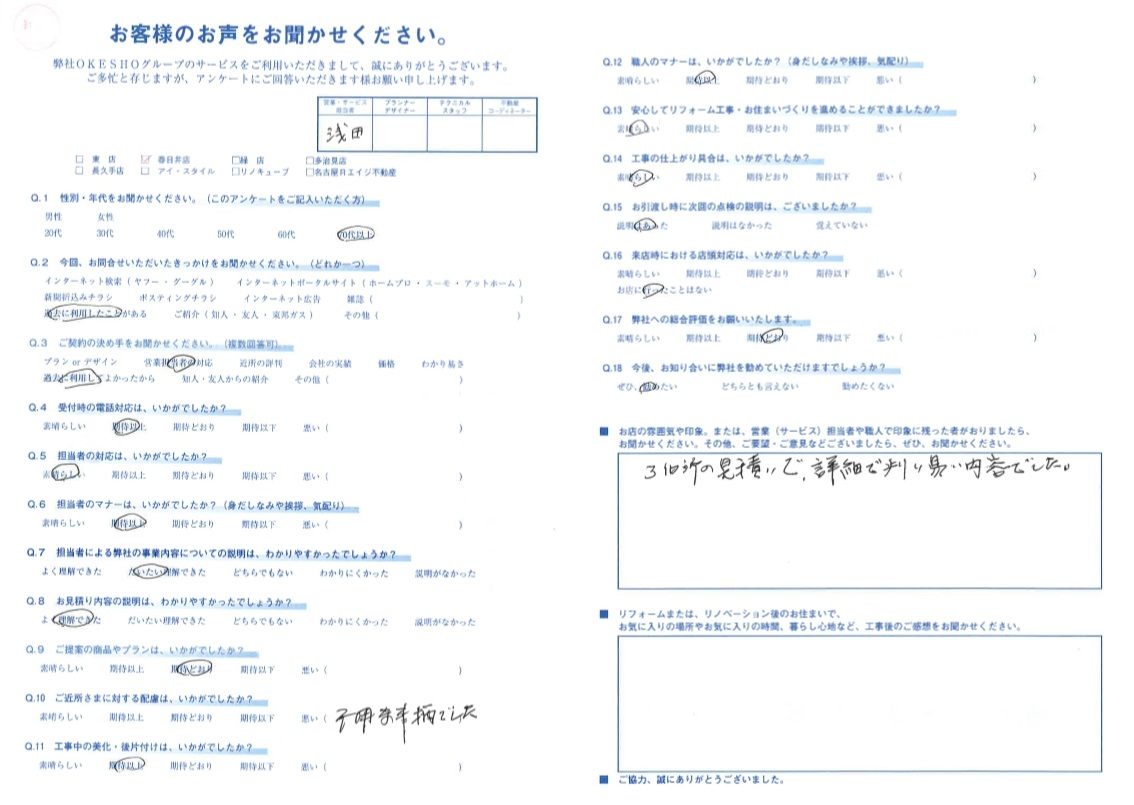 お客様のお声をお聞かせください。
弊社OKESHOグループのサービスをご利用いただきまして、誠にありがとうございます。
ご多忙と存じますが、アンケートにご回答いただきます様お願い申し上げます。
営業・サービス担当者 プランナーデザイナー テクニカルスタッフ 不動産コーディネーター
浅田
□ 東店 □ 春日井店 □緑店 □多治見店
□ 長久手店 □ アイ・スタイル □リノキューブ □名古屋日エイジ不動産
Q.1 性別・年代をお聞かせください。（このアンケートをご記入いただく方）
男性 女性
20代 30代 40代 50代 60代 70代以上
Q.2 今回、お問合せいただいたきっかけをお聞かせください。（どれか一つ）
インターネット検索（ヤフー・グーグル） インターネットポータルサイト（ホームプロ・スーモ・アットホーム）
新聞折込みチラシ ポスティングチラシ インターネット広告 雑誌（ ）
過去に利用したことがある ご紹介（知人・友人・東邦ガス） その他（ ）
Q.3 ご契約の決め手をお聞かせください。（複数回答可）
プラン or デザイン 営業担当者の対応 近所の評判 会社の実績 価格 わかり易さ
過去に利用してよかったから 知人・友人からの紹介 その他（ ）
Q.4 受付時の電話対応は、いかがでしたか？
素晴らしい 期待以上 期待どおり 期待以下 悪い（ ）
Q.5 担当者の対応は、いかがでしたか？
素晴らしい 期待以上 期待どおり 期待以下 悪い（ ）
Q.6 担当者のマナーは、いかがでしたか？（身だしなみや挨拶、気配り）
素晴らしい 期待以上 期待どおり 期待以下 悪い（ ）
Q.7 担当者による弊社の事業内容についての説明は、わかりやすかったでしょうか？
よく理解できた だいたい理解できた どちらでもない わかりにくかった 説明がなかった
Q.8 お見積り内容の説明は、わかりやすかったでしょうか？
よく理解できた だいたい理解できた どちらでもない わかりにくかった 説明がなかった
Q.9 ご提案の商品やプランは、いかがでしたか？
素晴らしい 期待以上 期待どおり 期待以下 悪い（ ）
Q.10 ご近所さまに対する配慮は、いかがでしたか？
素晴らしい 期待以上 期待どおり 期待以下 悪い（
Q.11 工事中の美化・後片付けは、いかがでしたか？
素晴らしい 期待以上 期待どおり 期待以下 悪い（ ）
Q.12 職人のマナーは、いかがでしたか？（身だしなみや挨拶、気配り）
素晴らしい 期待以上 期待どおり 期待以下 悪い（ ）
Q.13 安心してリフォーム工事・お住まいづくりを進めることができましたか？
素晴らしい 期待以上 期待どおり 期待以下 悪い（ ）
Q.14 工事の仕上がり具合は、いかがでしたか？
素晴らしい 期待以上 期待どおり 期待以下 悪い（ ）
Q.15 お引渡し時に次回の点検の説明は、ございましたか？
説明はあった 説明はなかった 覚えていない
Q.16 来店時における店頭対応は、いかがでしたか？
素晴らしい 期待以上 期待どおり 期待以下 悪い（ ）
お店に行ったことはない
Q.17 弊社への総合評価をお願いいたします。
素晴らしい 期待以上 期待どおり 期待以下 悪い（ ）
Q.18 今後、お知り合いに弊社を勧めていただけますでしょうか？
ぜひ、勧めたい どちらとも言えない 勧めたくない
■ お店の雰囲気や印象。または、営業（サービス）担当者や職人で印象に残った者がおりましたら、
お聞かせください。その他、ご要望・ご意見などございましたら、ぜひ、お聞かせください。
3ヶ所の見積りで、詳細で判り易い内容でした。
■ リフォームまたは、リノベーション後のお住まいで、
お気に入りの場所やお気に入りの時間、暮らし心地など、工事後のご感想をお聞かせください。
■ ご協力、誠にありがとうございました。